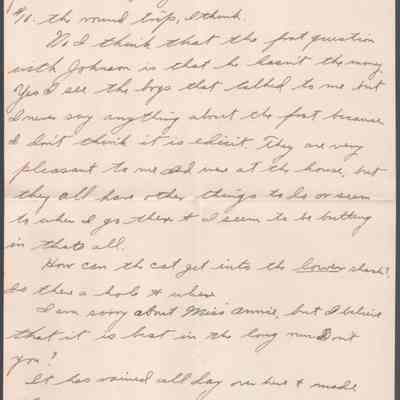 $1. the round trip, I think.
No I think that the foot question
with Johnson is that he hasn't the money.
Yes I see the boys that talked to me but
I never say anything about the foot because
I don't think it is edicit. They are very
pleasant to me did were at the house, but
they all have other things to do or seem
to when I go there & I seem to be butting
in thats all.
How can the cat get into the lower shack?
Is there a hole & where
I am sorry about Miss Annie, but I believe
that it is best in the long run Don't
you?
It has rained all day over here & made